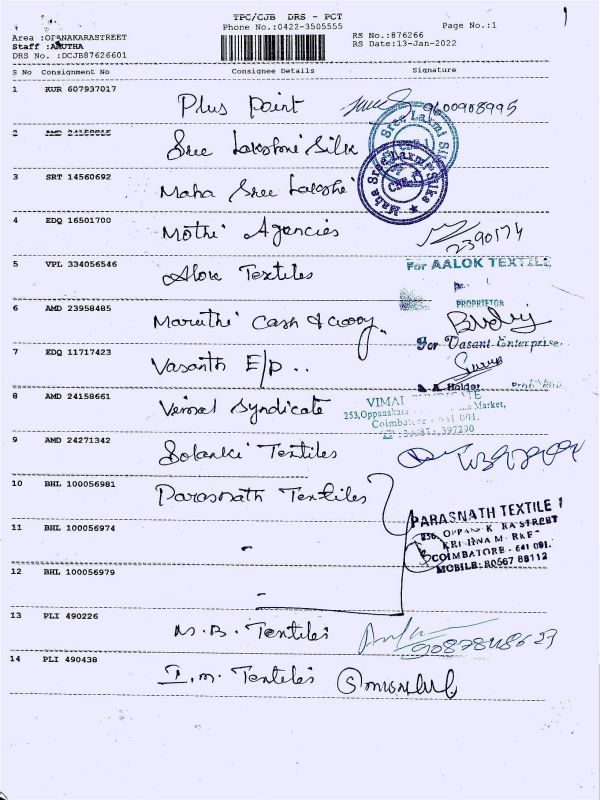 TPC/CJB DRS - PCT
Phone No.:0422-3505555
Page No.:1
Area :OPANAKARASTREET
RS No.:876266
Staff :ANUTHA
RS Date:13-Jan-2022
DRS No. :DCJB87626601
S No Consignment No Consignee Details Signature
1 KUR 607937017 Plus Point 9600908995
2 AMD Sree Lakshmi Silk
Sree Laxmi
3 SRT 14560692 Maha Sree Lakshmi
Maha Sree Laxmi Silks
CBE-1
4 EDQ 16501700 Mothi Agencies 2390174
5 VPL 334056546 Alok Textiles
For AALOK TEXTILE
PROPRIETOR
6 AMD 23958485 Maruthi Cash & Carry
7 EDQ 11717423 Vasanth E/p ..
For Vasant Enterprise.
P. A. Holder
8 AMD 24158661 Vimal Syndicate
VIMAL SYNDICATE
253,Oppanakara Market,
Coimbatore - 641 001.
397290
9 AMD 24271342 Solanki Textiles
10 BHL 100056981 Parasnath Textiles
PARASNATH TEXTILE
256, OPPANAKKARA STREET
KRISHNA MARKET
COIMBATORE - 641 001.
MOBILE: 80567 88112
11 BHL 100056974 -
12 BHL 100056979 -
13 PLI 490226 M.B. Textiles
14 PLI 490438 I.M. Textiles